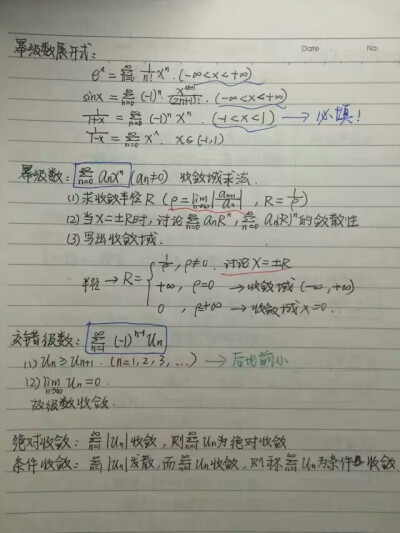 幂级数展开式:
Date No.
e^x = ∑_{n=0}^{∞} 1/n! x^n. (-∞<x<+∞)
sinx = ∑_{n=0}^{∞} (-1)^n x^{2n+1}/(2n+1)!. (-∞<x<+∞)
1/(1+x) = ∑_{n=0}^{∞} (-1)^n x^n. (-1<x<1) → 必填!
1/(1-x) = ∑_{n=0}^{∞} x^n. x∈(-1,1)
幂级数: ∑_{n=0}^{∞} a_n x^n (a_n≠0) 收敛域求法.
(1) 求收敛半径R (ρ=lim_{n→∞} |a_{n+1}/a_n|, R=1/ρ)
(2) 当X=±R时, 讨论 ∑_{n=0}^{∞} a_n R^n, ∑_{n=0}^{∞} a_n(-R)^n 的敛散性
(3) 写出收敛域.
半径 → R= { 1/ρ, ρ≠0. 讨论X=±R
+∞, ρ=0 → 收敛域 (-∞,+∞)
0, ρ=+∞ → 收敛域 X=0.
交错级数: ∑_{n=1}^{∞} (-1)^{n-1} U_n
(1) U_n ≥ U_{n+1}. (n=1,2,3,...) → 后比前小
(2) lim_{n→∞} U_n = 0.
故级数收敛.
绝对收敛: ∑_{n=1}^{∞} |U_n| 收敛, 则 ∑_{n=1}^{∞} U_n 为绝对收敛
条件收敛: ∑_{n=1}^{∞} |U_n| 发散, 而 ∑_{n=1}^{∞} U_n 收敛, 则称 ∑_{n=1}^{∞} U_n 为条件收敛.